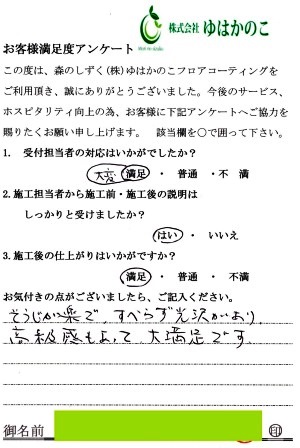 株式会社 ゆはかのこ
お客様満足度アンケート
この度は、森のしずく(株)ゆはかのこフロアコーティングを
ご利用頂き、誠にありがとうございました。今後のサービス、
ホスピタリティ向上の為、お客様に下記アンケートへご協力を
賜りたくお願い申し上げます。 該当欄を〇で囲って下さい。
1. 受付担当者の対応はいかがでしたか?
大変 満足 ・ 普通 ・ 不 満
2. 施工担当者から施工前・施工後の説明は
しっかりと受けましたか?
はい ・ いいえ
3. 施工後の仕上がりはいかがですか?
満足 ・ 普通 ・ 不満
お気付きの点がございましたら、ご記入ください。
そうじが楽で、すべらず光沢があり、
高級感もあって 大満足です
御名前 ㊞